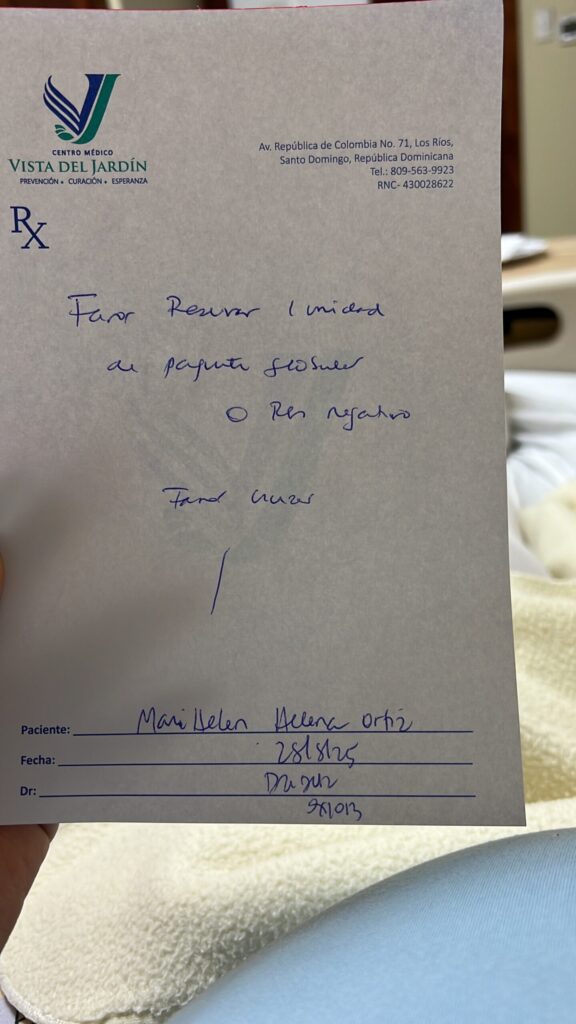 CENTRO MÉDICO
VISTA DEL JARDÍN
PREVENCIÓN • CURACIÓN • ESPERANZA
Av. República de Colombia No. 71, Los Ríos,
Santo Domingo, República Dominicana
Tel.: 809-563-9923
RNC- 430028622
Rx
Favor Reservar 1 unidad
de paquete globular
O Rh negativo
Favor cruzar
Paciente: Mari Helen Ortiz
Fecha: 28/8/25
Dr: